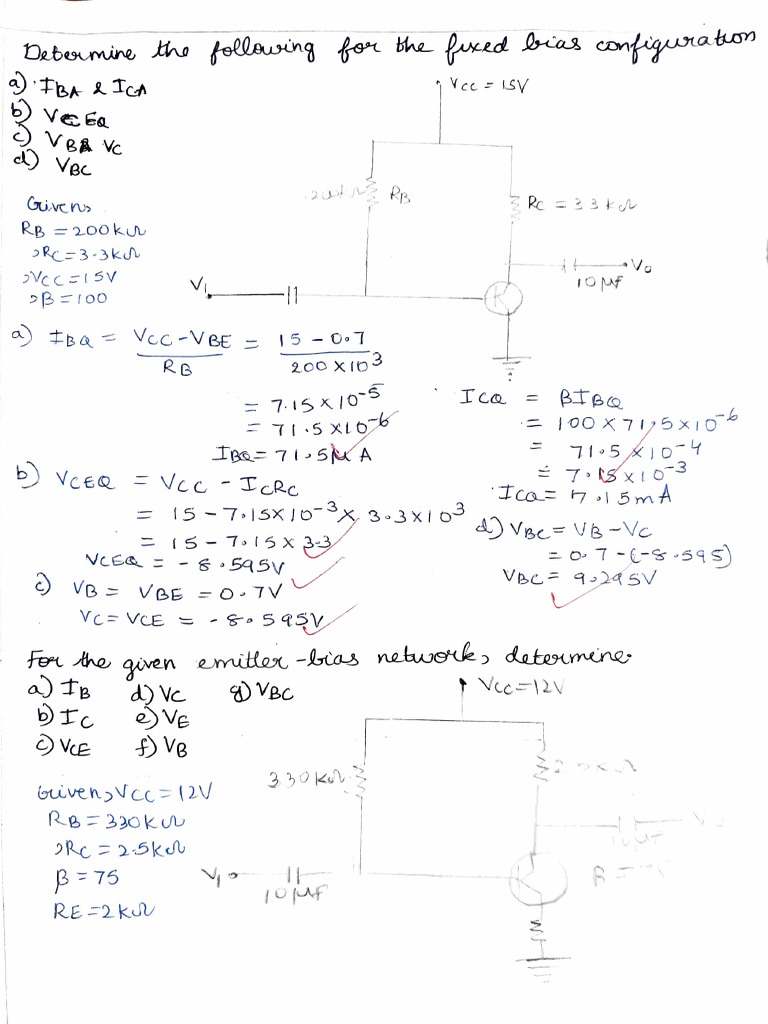 Determine the following for the fixed bias configuration
a) IBA & ICA
b) VCEQ
c) VB & VC
d) VBC
VCC = 15V
RB
RC = 33kΩ
Vo
10μF
Vi
Given,
RB = 200kΩ
, RC = 3.3kΩ
, VCC = 15V
, β = 100
a) IBQ = VCC - VBE = 15 - 0.7
RB 200 × 10^3
= 7.15 × 10^-5
= 71.5 × 10^-6
IBQ = 71.5μA
ICQ = βIBQ
= 100 × 71.5 × 10^-6
= 71.5 × 10^-4
= 7.15 × 10^-3
ICQ = 7.15mA
b) VCEQ = VCC - ICRC
= 15 - 7.15 × 10^-3 × 3.3 × 10^3
= 15 - 7.15 × 3.3
VCEQ = -8.595V
c) VB = VBE = 0.7V
VC = VCE = -8.595V
d) VBC = VB - VC
= 0.7 - (-8.595)
VBC = 9.295V
For the given emitter-bias network, determine.
a) IB d) VC g) VBC
b) IC e) VE
c) VCE f) VB
VCC = 12V
330kΩ
Vi
10μF
Given, VCC = 12V
RB = 330kΩ
, RC = 2.5kΩ
β = 75
RE = 2kΩ